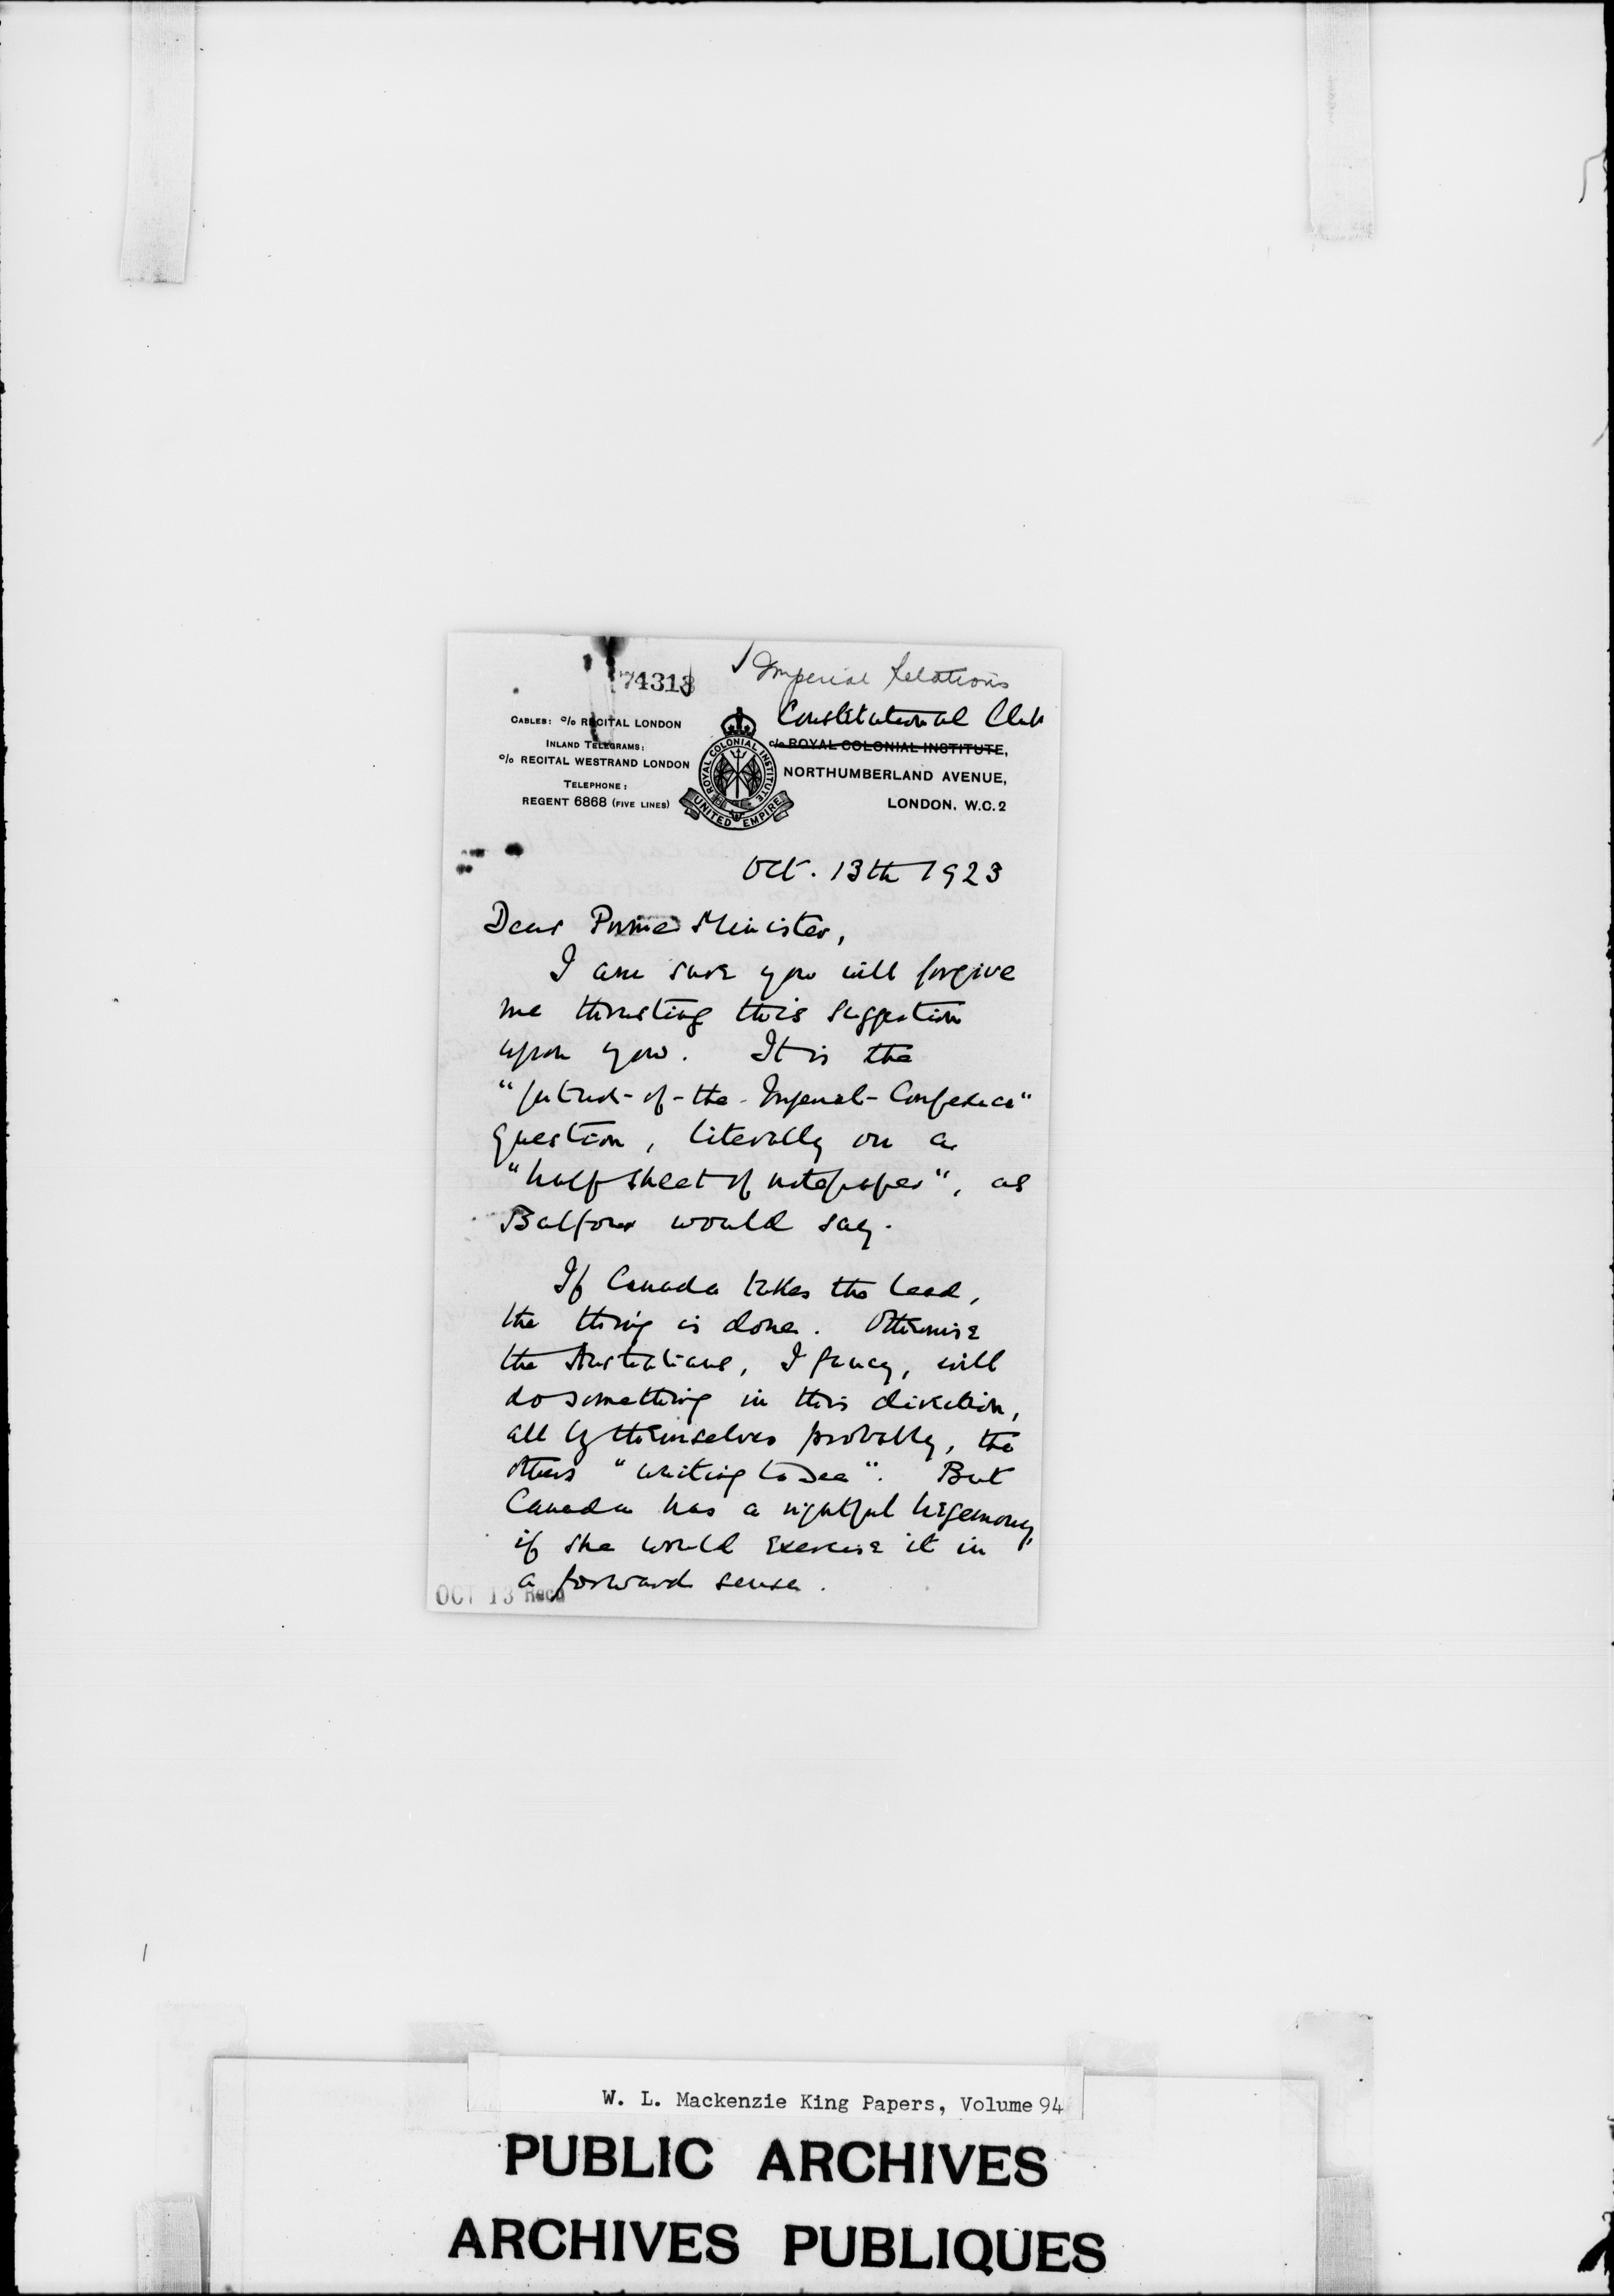 74313
✓ Imperial Relations
Constitutional Club
CABLES: c/o RECITAL LONDON
INLAND TELEGRAMS:
c/o RECITAL WESTRAND LONDON
TELEPHONE:
REGENT 6868 (FIVE LINES)
ROYAL COLONIAL INSTITUTE
UNITED EMPIRE
c/o ROYAL COLONIAL INSTITUTE,
NORTHUMBERLAND AVENUE,
LONDON. W.C.2
Oct. 13th 1923
Dear Prime Minister,
I am sure you will forgive
me thrusting this suggestion
upon you. It is the
"future-of-the-Imperial-Conference"
question, literally on a
"half sheet of notepaper", as
Balfour would say.
If Canada takes the lead,
the thing is done. Otherwise
the Australians, I fancy, will
do something in this direction,
all by themselves probably, the
others "waiting to see". But
Canada has a rightful hegemony,
if she would exercise it in
a forward sense.
OCT 13 Recd
W. L. Mackenzie King Papers, Volume 94
PUBLIC ARCHIVES
ARCHIVES PUBLIQUES